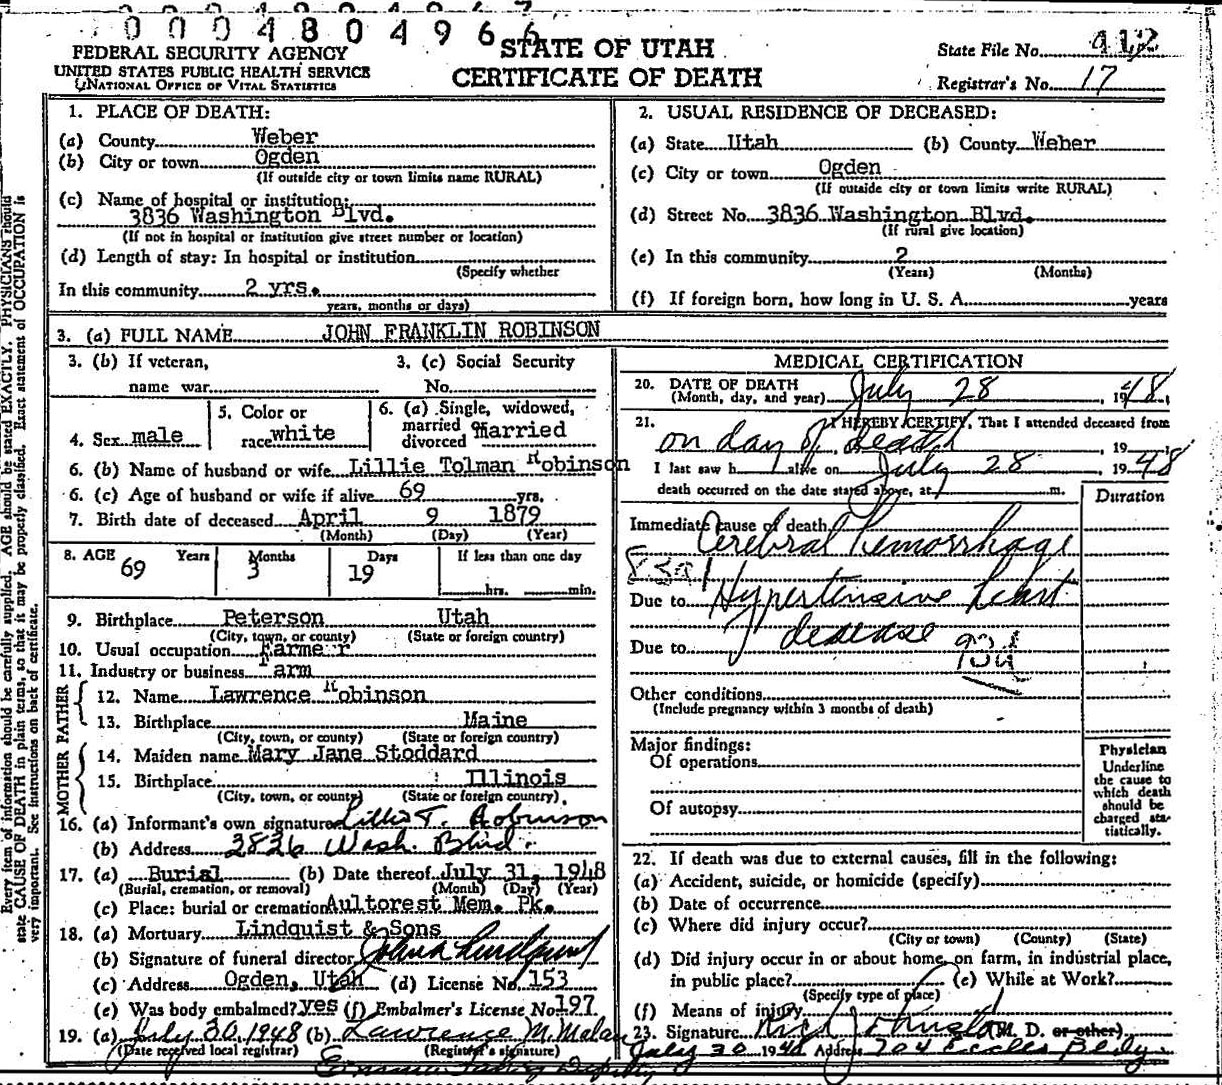 0004804966
FEDERAL SECURITY AGENCY
UNITED STATES PUBLIC HEALTH SERVICE
NATIONAL OFFICE OF VITAL STATISTICS
STATE OF UTAH
CERTIFICATE OF DEATH
State File No. 412
Registrar's No. 17
1. PLACE OF DEATH:
(a) County Weber
(b) City or town Ogden
(If outside city or town limits name RURAL)
(c) Name of hospital or institution:
3836 Washington Blvd.
(If not in hospital or institution give street number or location)
(d) Length of stay: In hospital or institution
(Specify whether
In this community 2 yrs.
years, months or days)
2. USUAL RESIDENCE OF DECEASED:
(a) State Utah (b) County Weber
(c) City or town Ogden
(If outside city or town limits write RURAL)
(d) Street No. 3836 Washington Blvd.
(If rural give location)
(e) In this community 2
(Years) (Months)
(f) If foreign born, how long in U. S. A. years
3. (a) FULL NAME JOHN FRANKLIN ROBINSON
3. (b) If veteran,
name war
3. (c) Social Security
No.
4. Sex male
5. Color or
race white
6. (a) Single, widowed,
married or
divorced Married
6. (b) Name of husband or wife Lillie Tolman Robinson
6. (c) Age of husband or wife if alive 69 yrs.
7. Birth date of deceased April 9 1879
(Month) (Day) (Year)
8. AGE Years Months Days If less than one day
69 3 19 hrs. min.
9. Birthplace Peterson Utah
(City, town, or county) (State or foreign country)
10. Usual occupation Farmer
11. Industry or business Farm
FATHER
12. Name Lawrence Robinson
13. Birthplace Maine
(City, town, or county) (State or foreign country)
MOTHER
14. Maiden name Mary Jane Stoddard
15. Birthplace Illinois
(City, town, or county) (State or foreign country)
16. (a) Informant's own signature Lillie T. Robinson
(b) Address 3836 Wash. Blvd.
17. (a) Burial (b) Date thereof July 31, 1948
(Burial, cremation, or removal) (Month) (Day) (Year)
(c) Place: burial or cremation Aultorest Mem. Pk.
18. (a) Mortuary Lindquist & Sons
(b) Signature of funeral director
(c) Address Ogden, Utah (d) License No. 153
(e) Was body embalmed? yes (f) Embalmer's License No. 197
19. (a) July 30, 1948 (b) Lawrence M. Malan
(Date received local registrar) (Registrar's signature)
Deputy
MEDICAL CERTIFICATION
20. DATE OF DEATH
(Month, day, and year) July 28, 1948
21. I HEREBY CERTIFY, That I attended deceased from
on day of death, 19
I last saw h alive on July 28 1948
death occurred on the date stated above, at m.
Duration
Immediate cause of death
Cerebral hemorrhage
Due to Hypertensive heart
Due to disease
93d
Other conditions
(Include pregnancy within 3 months of death)
Major findings:
Of operations
Of autopsy
Physician
Underline
the cause to
which death
should be
charged sta-
tistically.
22. If death was due to external causes, fill in the following:
(a) Accident, suicide, or homicide (specify)
(b) Date of occurrence
(c) Where did injury occur?
(City or town) (County) (State)
(d) Did injury occur in or about home, on farm, in industrial place,
in public place? (e) While at Work?
(Specify type of place)
(f) Means of injury
23. Signature Rich Johnston (M. D. or other)
July 30 1948 Address 704 Eccles Bldg.
Every item of information should be carefully supplied. AGE should be stated EXACTLY. PHYSICIANS should
state CAUSE OF DEATH in plain terms, so that it may be properly classified. Exact statement of OCCUPATION is
very important. See instructions on back of certificate.